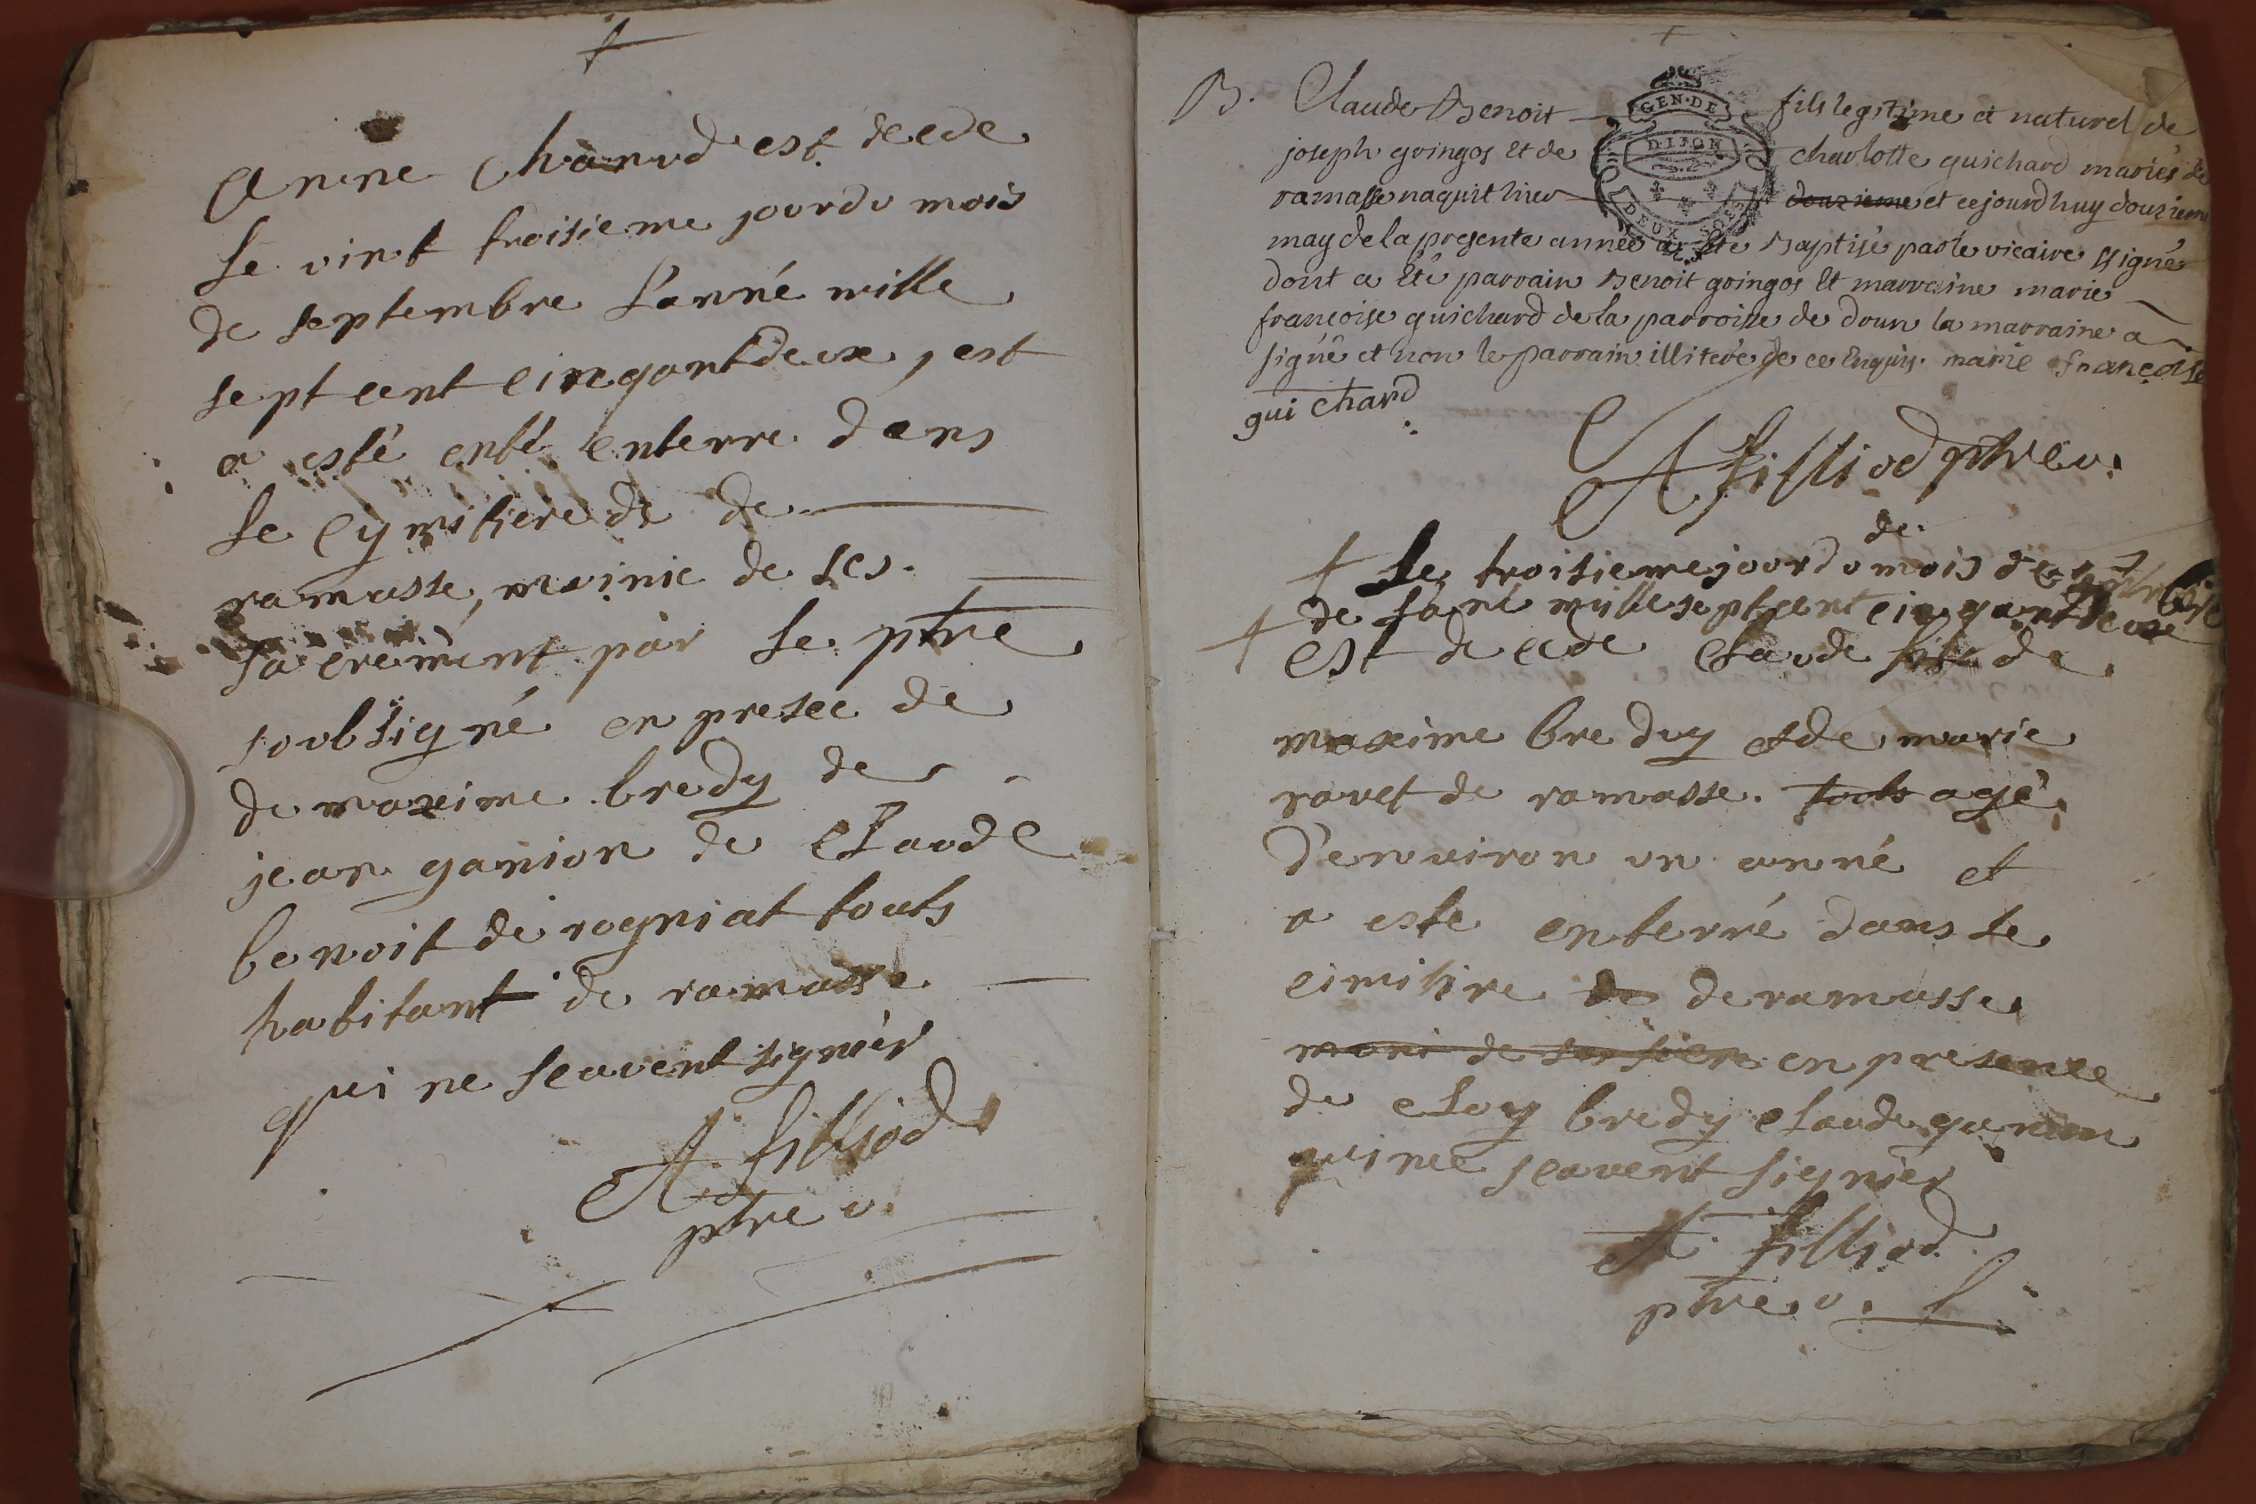 Anne Charud est decede
le vint troisieme jour du mois
de septembre l'anné mille
sept cent cinqantdeux, est
a esté enté enterre dans
le cymitiere de de
ramasse, mvinie de ses
sacrement par le ptre
soubsigné en presec de
de maxime bredy de
jean ganion de claude
benoit de rogniat touts
habitant de ramasse
qui ne scavent signier
A. filliod
ptre v.
B. Claude Benoit fils legitime et naturel de
joseph goingos et de charlotte guichard mariés de
ramasse naquit hier douzieme et cejourdhuy douzieme
GEN·DE
DIJON
DEUX SOLS
may de la presente année a été baptisé par le vicaire ssigné
dont a été parrain Benoit goingos et marraine marie
francoise guichard de la parroisse de drun la marraine a
signé et non le parrain illiteré de ce enquis. marie françoise
guichard
A filliod ptre v.
Le troisieme jour du mois de
de l'ané mille sept cent cinqantdeux
est decede claude fils de
maxime breduy et de marie
ravet de ramasse. touts agé
d'enuiron un anné et
a este enterré dans le
cimitire de de ramasse
muni de en presence
de cloy bredy claude ganion
qui ne scavent signier
A. filliod
ptre v.